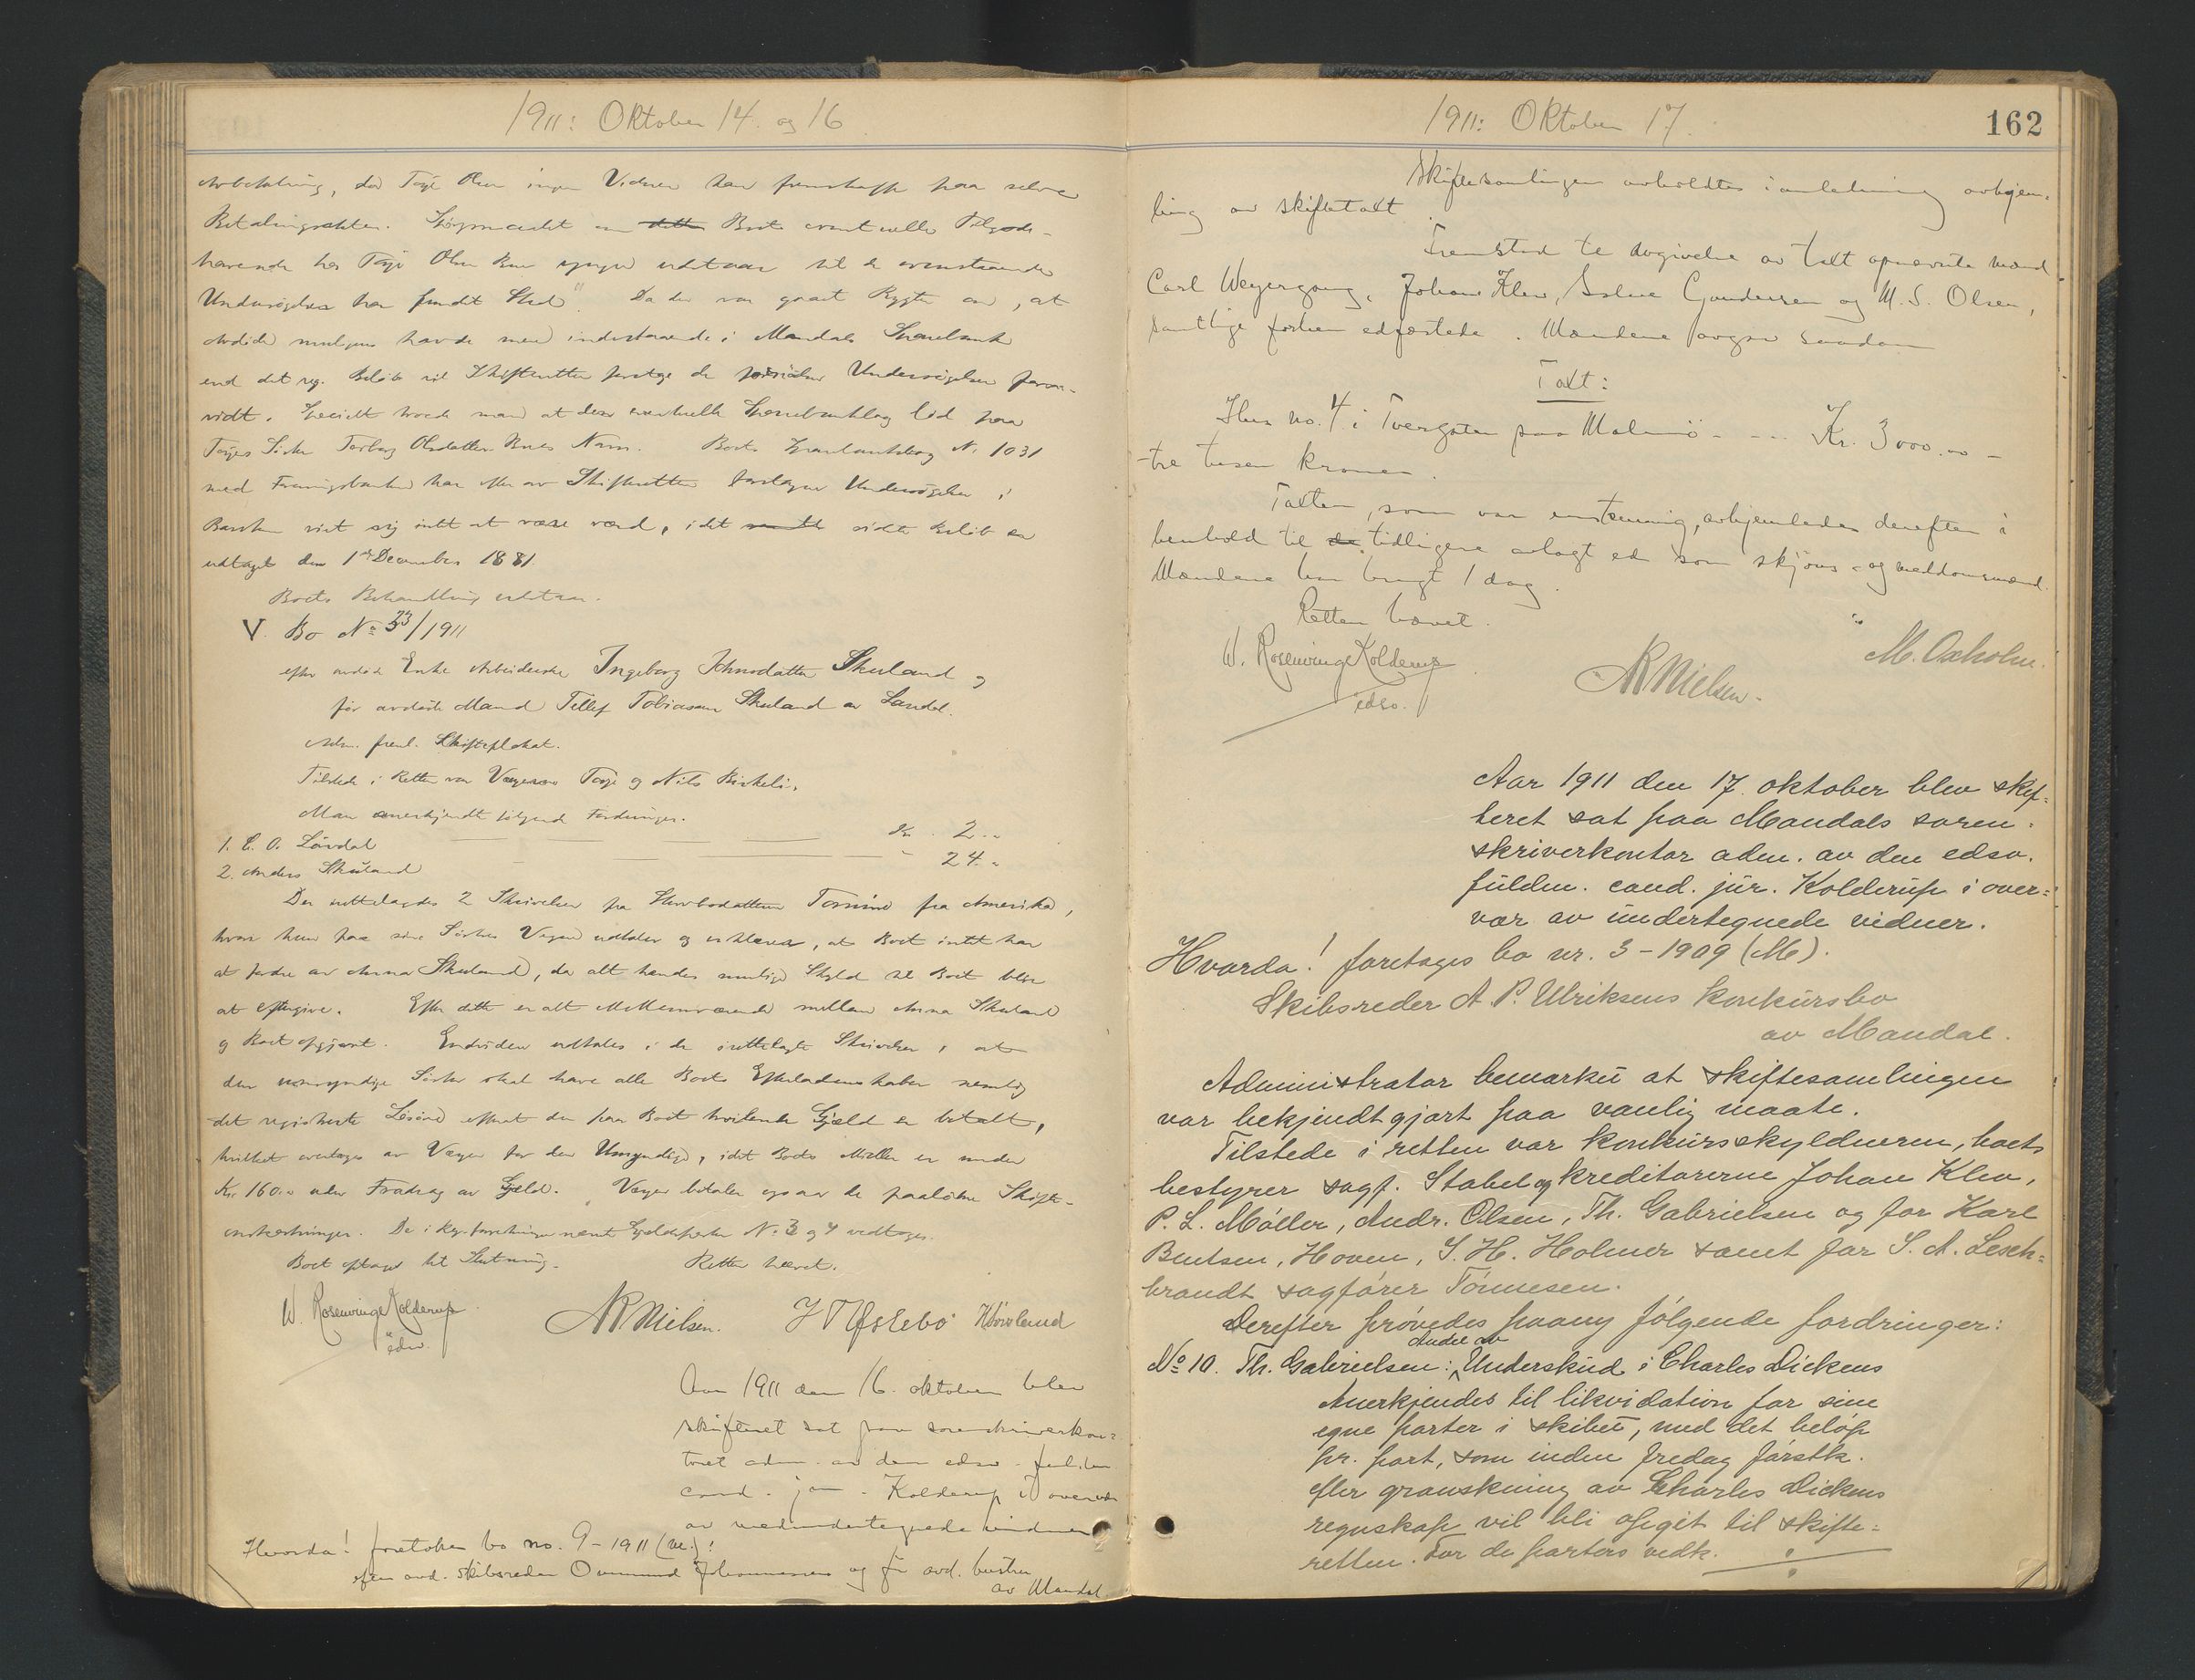 1911: Oktober 14. og 16
Avbetaling, da Tarje Olsen ingen Vidner har fremskaffe paa selve
Betalingsakten. Spørsmaalet om dette Boets eventuelle Tilgode-
havende hos Tarje Olsen Bue synes udetaar til de ovenstaaende
Undersøgelser har fundet Sted". Da der var gaaet Rygter om, at
Avdøde muligens havde mere indestaaende i Mandals Sparebank
end det reg. Beløb vil Skifteretten foretage de Undersøgelser
vidt. Specielt troede man at den eventuelle Sparebankbog lød paa
Tarjes Søster Torborg Olsdatter Bues Navn. Boets Sparebankbog No. 1031
med Foreningsbanken har efter av Skifteretten foretagne Undersøgelser i
Banken vist sig intet at være værd, idet sidste Beløb er
udtaget den 1ste December 1881.
Boets Behandling udstaar.
V. Bo No 33/1911
efter avdøde Enke Arbeiderske Ingeborg Johnsdatter Skuland og
før avdøde Mand Tellef Tobiassen Skuland av Landal.
Adm. freml. Skifteplakat.
Tilstede i Retten var Værgerne Tarje og Nils Birkeli.
Man anerkjendte følgende Fordringer.
1. E. O. Løvdal Kr. 2."
2. Anders Skuland " 24."
Der indtelagdes 2 Skrivelser fra Stervbodatteren Tomine fra Amerika,
hvor hun paa sine Søstres Vegne udtaler og erklærer, at Boet intet har
at fordre av Anna Skuland, da alt hendes mulige Skyld til Boet blir
at eftergive. Efter dette er alt Mellemværende mellem Anna Skuland
og Boet opgjort. Endvidere udtales i de indtelagte Skrivelser, at
den umyndige Søster skal have alle Boets Efterladenskaber nemlig
det registrerte Løsøre efterat den paa Boet hvilende Gjæld er betalt,
hvilket overtages av Værgen for den Umyndige, idet Boets Midler er under
Kr. 160.00 uden Fradrag av Gjæld. Værgen betaler ogsaa de paaløbne Skifte-
omkostninger. De i Reg. forretningen nevnte Gjældsposter No. 3 og 4 vedtoges.
Boet optages til Slutning. Retten hævet.
W. Rosenvinge Kolderup NR Nielsen. Høvland
edsv.
Aar 1911 den 16. oktober blev
skifteret sat paa sorenskriverkon=
toret adm. av den edsv. fuldm.
cand. jur. Kolderup i overvær
av medundertegnede vidner
Hvorda! foretokes bo no. 9-1911 (M.):
efter avd. skibsreder Ommund Johannessen og før avd. hustru
av Mandal.
1911: Oktober 17.
162
Skiftesamlingen avholdtes i anledning avhjem-
ling av skiftetakt.
Fremstod til avgivelse av takt opnævnte mænd
Carl Weyergang, Johan Klev, Salve Gundersen og M. S. Olsen,
samtlige forhen edfæstede. Mændene avgav saadan
Takt:
Hus no. 4 i Tvergaten paa Malmø - - - - Kr. 3000.00 -
-tre tusen kroner.
Takten, som var enstemmig, avhjemledes derefter i
henhold til de tidligere avlagt ed som skjøns- og meddomsmænd.
Mændene har brugt 1 dag.
Retten hævet.
W. Rosenvinge Kolderup
edsv.
NR Nielsen.
M. Oxholm.
Aar 1911 den 17. oktober blev skif=
teret sat paa Mandals soren.
skriverkontor adm. av den edsv.
fuldm. cand. jur. Kolderup i over=
vær av undertegnede vidner.
Hvorda! foretages bo nr. 3-1909 (M).
Skibsreder A. P. Ulriksens konkursbo
av Mandal.
Administrator bemærket at skiftesamlingen
var bekjendtgjort paa vanlig maate.
Tilstede i retten var konkursskyldneren, boets
bestyrer sagf. Stabel og kreditorerne Johan Klev,
P. L. Møller, Andr. Olsen, Th. Gabrielsen og for Karl
Bentsen, Hoven, S. H. Holmer samt for S. A. Lesch=
brandt sagfører Tønnesen.
Derefter prøvedes paany følgende fordringer:
Andel av
No 10. Th. Gabrielsen: Underskud i Charles Dickens
Anerkjendes til likvidation for sine
egne parter i skibet, med det beløp
pr. part, som inden fredag førstk.
efter granskning av Charles Dickens
regnskap vil bli opgit til skifte=
retten. For de parters vedk.